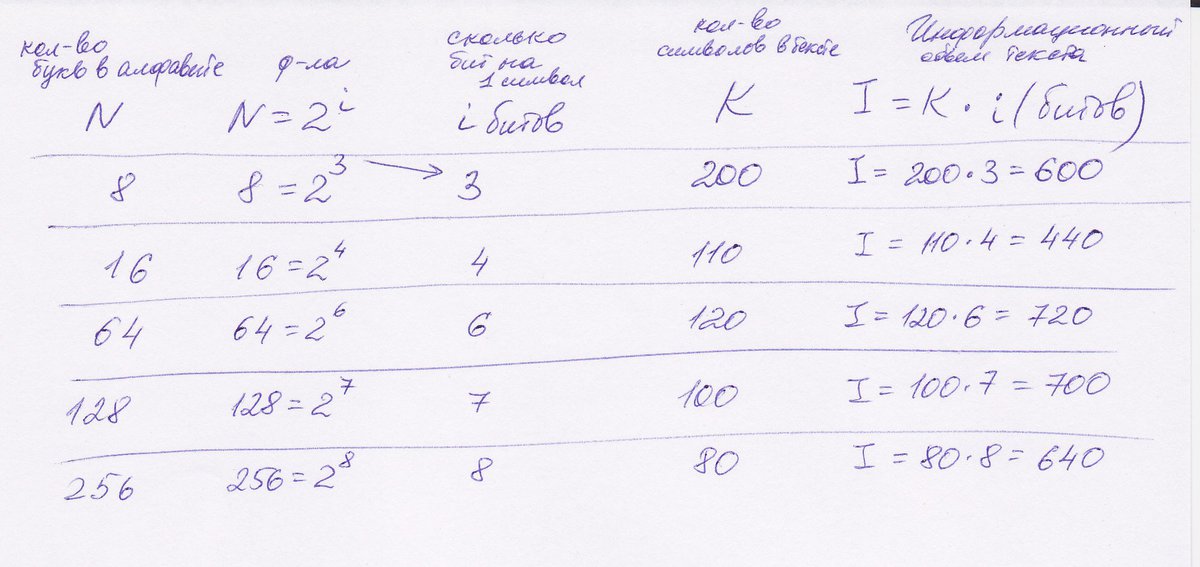 кол-во букв в алфавите ф-ла сколько бит на 1 символ кол-во символов в тексте Информационный объем текста
N N = 2^i i битов K I = K · i (битов)
8 8 = 2^3 → 3 200 I = 200 · 3 = 600
16 16 = 2^4 4 110 I = 110 · 4 = 440
64 64 = 2^6 6 120 I = 120 · 6 = 720
128 128 = 2^7 7 100 I = 100 · 7 = 700
256 256 = 2^8 8 80 I = 80 · 8 = 640